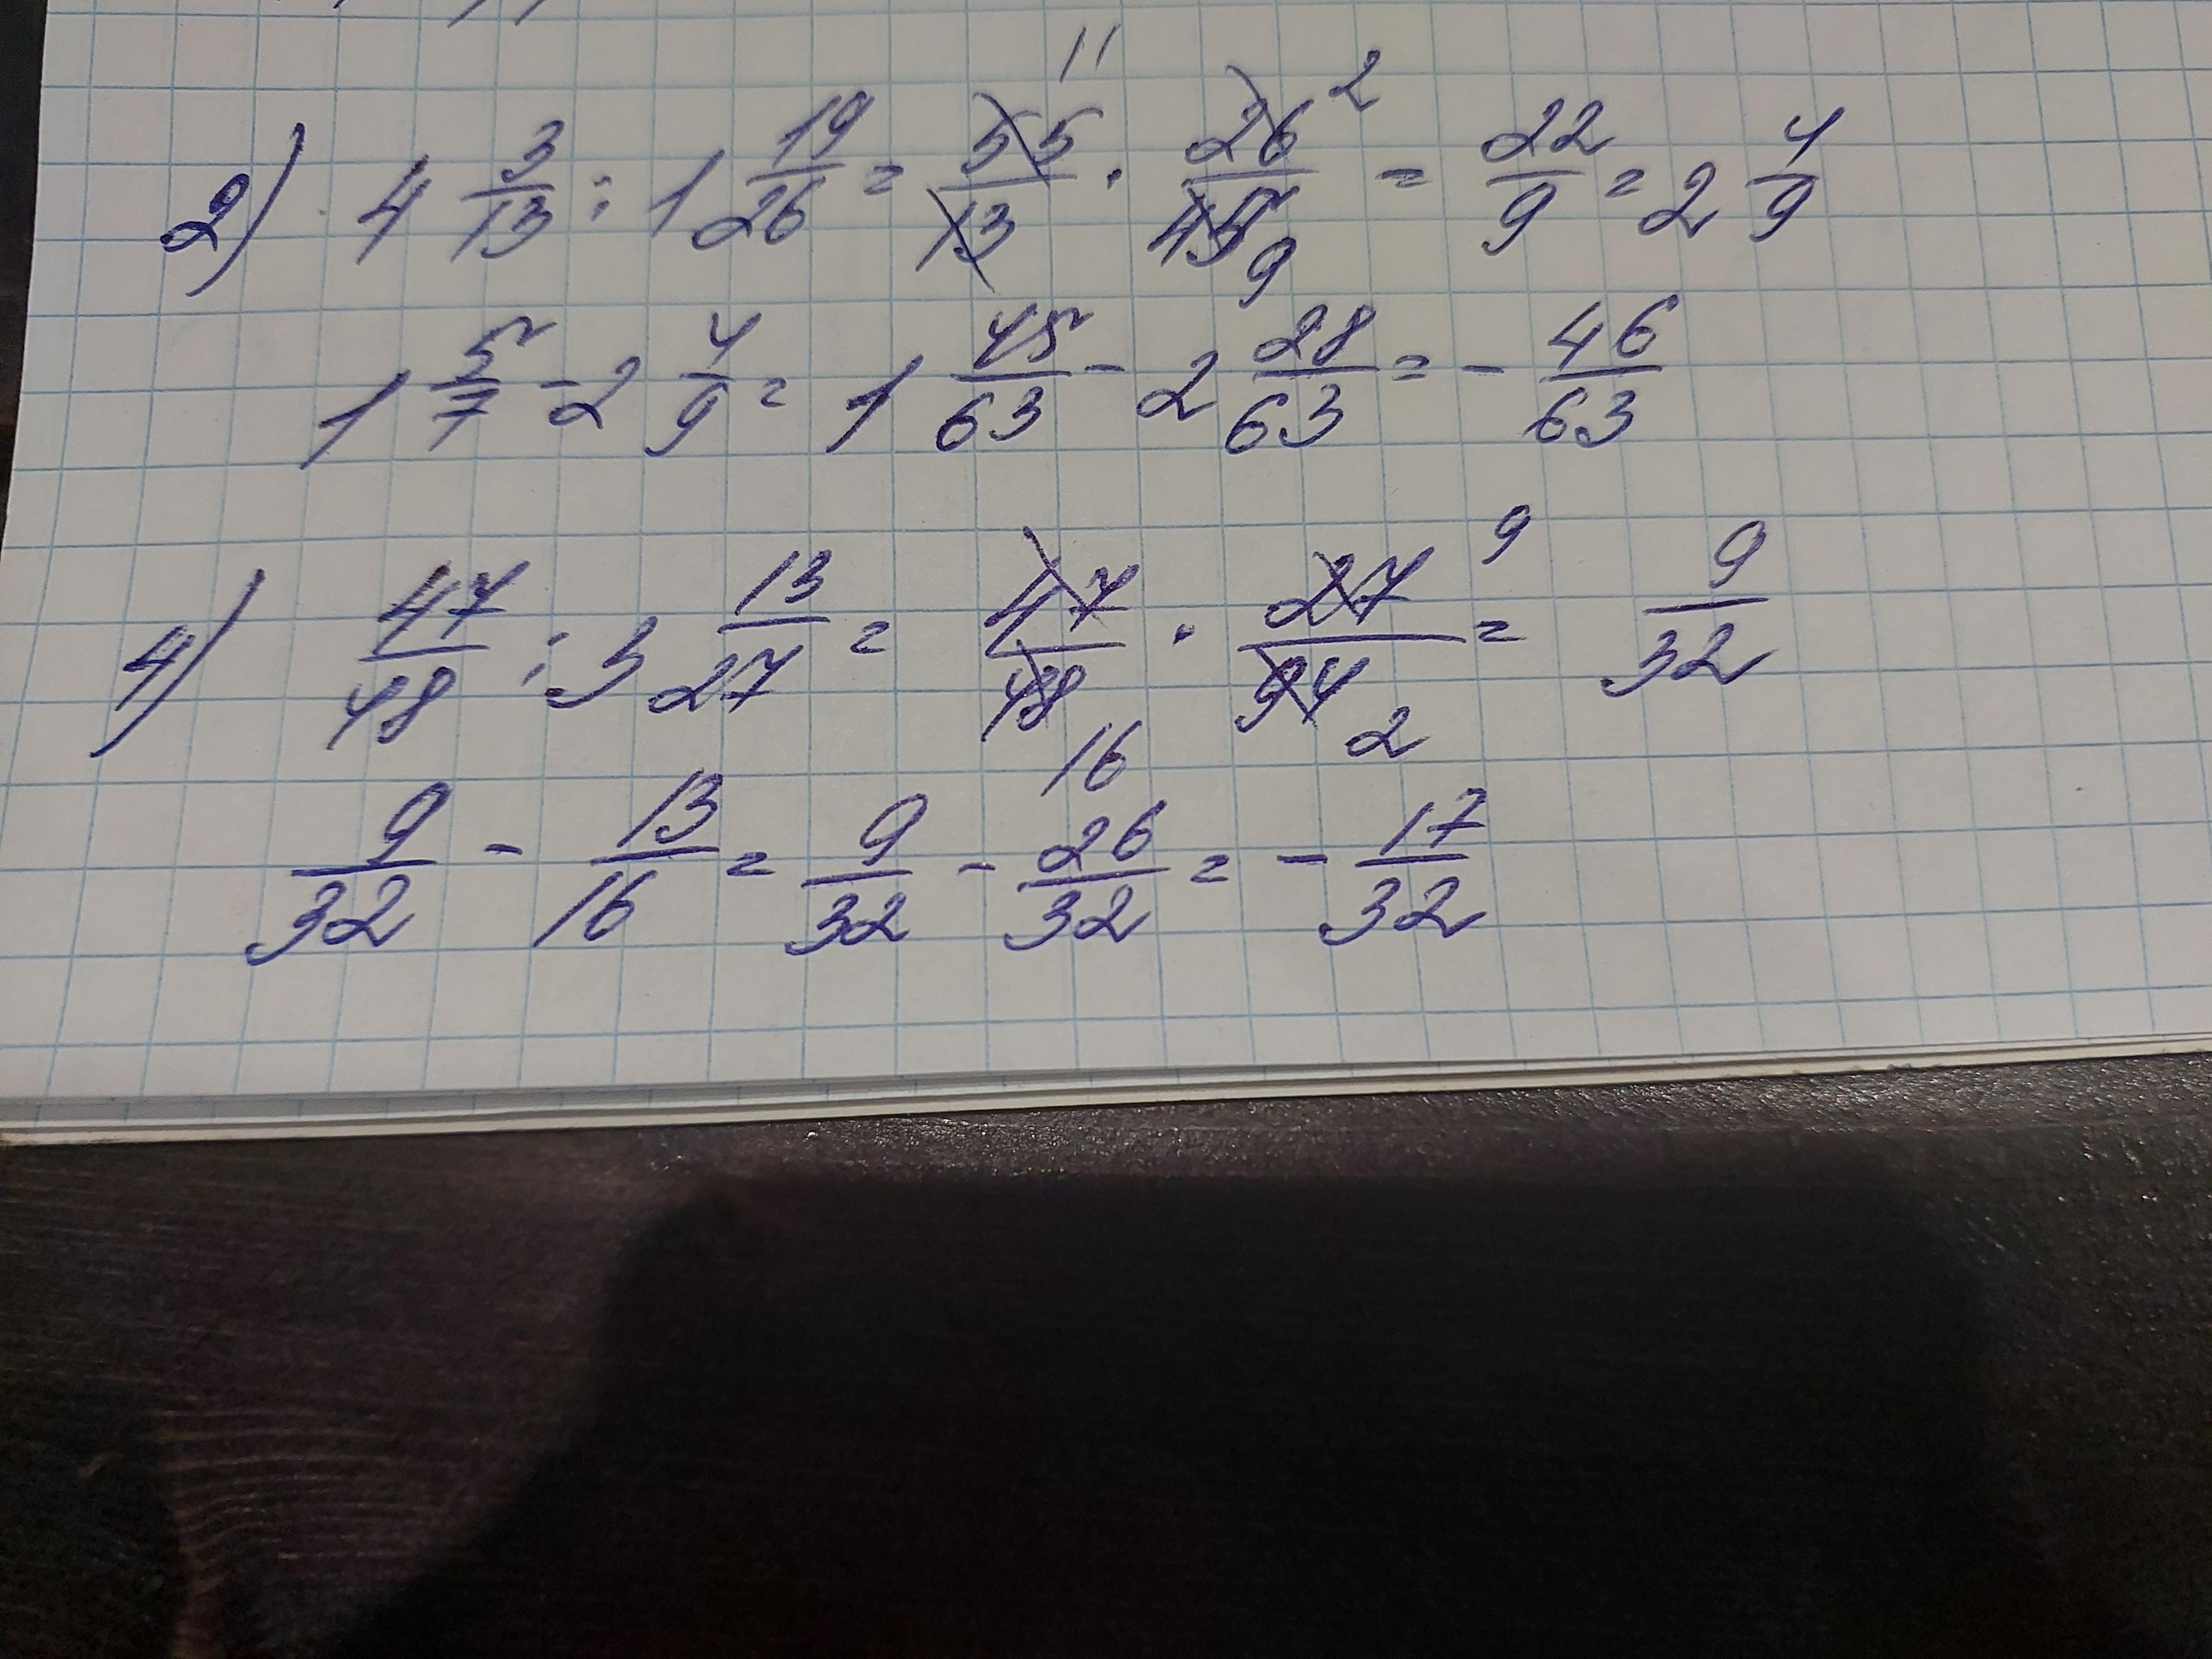 2) 4 3/13 : 1 19/26 = 55/13 · 26/45 = 22/9 = 2 4/9
1 5/7 - 2 4/9 = 1 45/63 - 2 28/63 = - 46/63
4) 47/48 : 3 13/27 = 47/48 · 27/94 = 9/32
9/32 - 13/16 = 9/32 - 26/32 = - 17/32